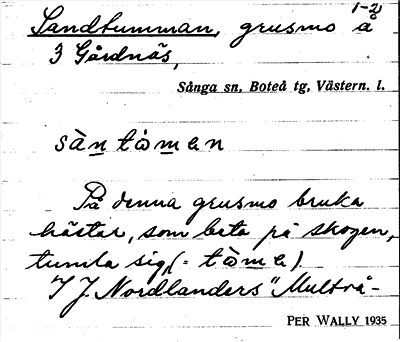 Sandtumman, grusmo å 1-2
3 Gårdnäs,
Sånga sn, Boteå tg, Västern. l.
sàn tòman
På denna grusmo bruka
hästar, som beta på skogen,
tumla sig (= tòma).
I J. Nordlanders "Multrå-
PER WALLY 1935